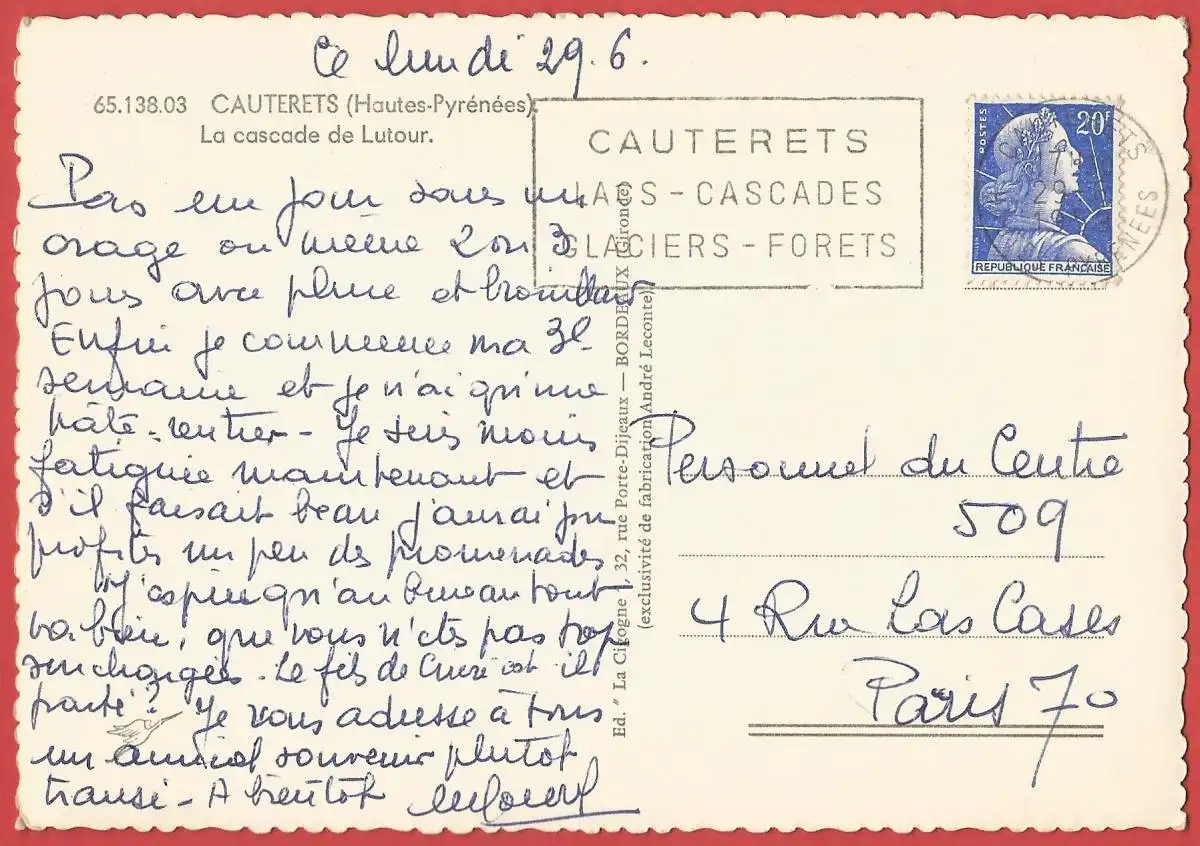 Ce lundi 29.6.
65.138.03 CAUTERETS (Hautes-Pyrénées).
La cascade de Lutour.
Pas un jour sans un
orage ou même 2 ou 3
jours avec pluie et brouillard
Enfin je commence ma 3e
semaine et je n'ai qu'une
hâte - rentrer - Je suis moins
fatiguée maintenant et
s'il faisait beau j'aurai pu
profiter un peu des promenades
J'espère qu'au bureau tout
va bien, que vous n'êtes pas trop
surchargées. Le fils de est il
parti ? Je vous adresse à tous
un amical souvenir plutot
transi - A bientôt
CAUTERETS
LACS - CASCADES
GLACIERS - FORETS
POSTES
20F
REPUBLIQUE FRANÇAISE
CAUTERETS
29
PYRENEES
Ed. " La Cigogne ", 32, rue Porte-Dijeaux — BORDEAUX (Gironde)
(exclusivité de fabrication André Leconte)
Personnel du Centre
509
4 Rue Las Cases
Paris 7o